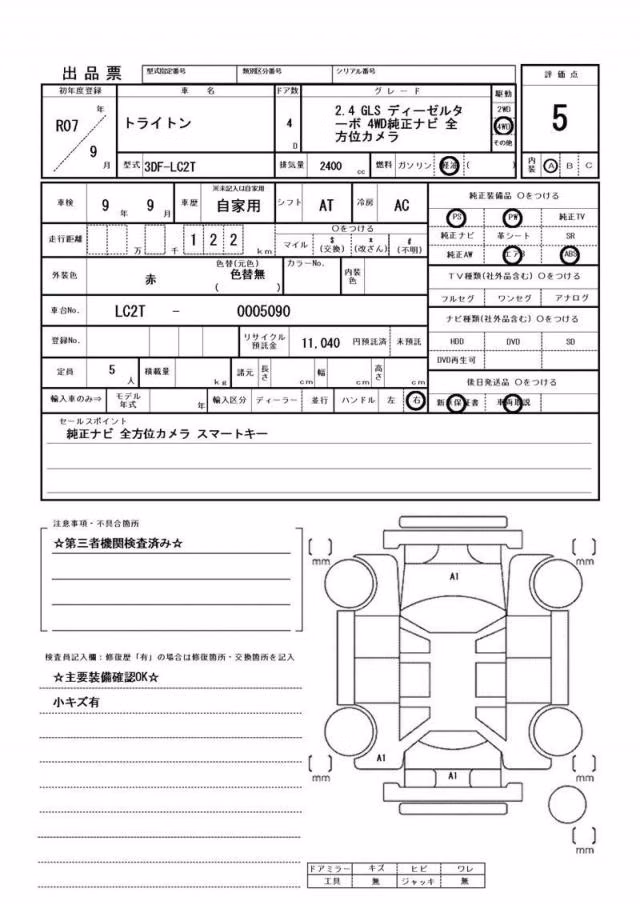 出品票 型式指定番号 類別区分番号 シリアル番号
初年度登録 車 名 ドア数 グ レ ー ド 駆動 評 価 点
R07 年 9 月
トライトン
4 D
2.4 GLS ディーゼルタ
ーボ 4WD純正ナビ 全
方位カメラ
2WD
4WD
その他
5
型式 3DF-LC2T 排気量 2400 cc 燃料 ガソリン 軽油 ( )
内装 A B C
車検 9 年 9 月 車歴 ※未記入は自家用 自家用 シフト AT 冷房 AC
走行距離 万 千 1 2 2 km
〇をつける
マイル $ (交換) * (改ざん) # (不明)
外装色 赤 色替(元色) 色替無 ( ) カラーNo. 内装色
車台No. LC2T - 0005090
登録No. リサイクル預託金 11,040 円預託済 未預託
定員 5 人 積載量 kg 諸元 長さ cm 幅 cm 高さ cm
輸入車のみ⇒ モデル年式 年 輸入区分 ディーラー 並行 ハンドル 左 右
純正装備品 〇をつける
PS PW 純正TV
純正ナビ 革シート SR
純正AW エアB ABS
TV種類(社外品含む) 〇をつける
フルセグ ワンセグ アナログ
ナビ種類(社外品含む) 〇をつける
HDD DVD SD
DVD再生可
後日発送品 〇をつける
新車保証書 車両取説
セールスポイント
純正ナビ 全方位カメラ スマートキー
注意事項・不具合箇所
☆第三者機関検査済み☆
検査員記入欄：修復歴「有」の場合は修復箇所・交換箇所を記入
☆主要装備確認OK☆
小キズ有
mm
mm
A1
A1
A1
mm
mm
mm
ドアミラー キズ ヒビ ワレ
工具 無 ジャッキ 無